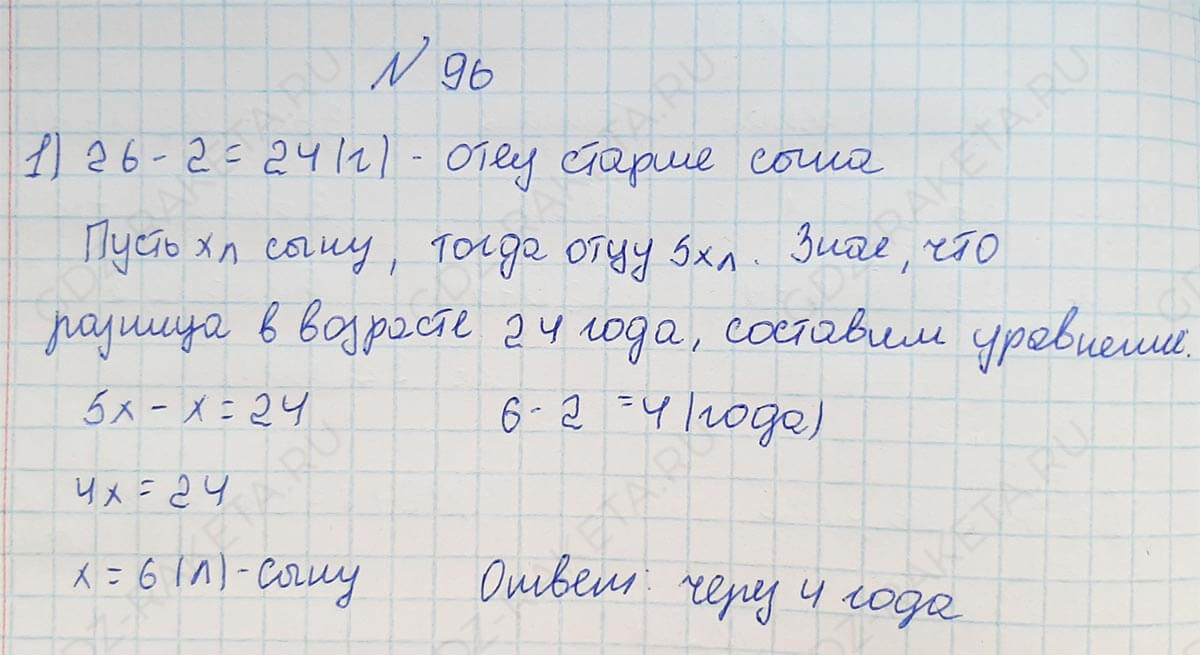 № 96
1) 26 - 2 = 24 (г) - отец старше сына
Пусть х л сыну, тогда отцу 5х л. Зная, что
разница в возрасте 24 года, составим уравнение.
5х - х = 24 6 - 2 = 4 (года)
4х = 24
х = 6 (л) - сыну Ответ: через 4 года
GDZ-RAKETA.RU